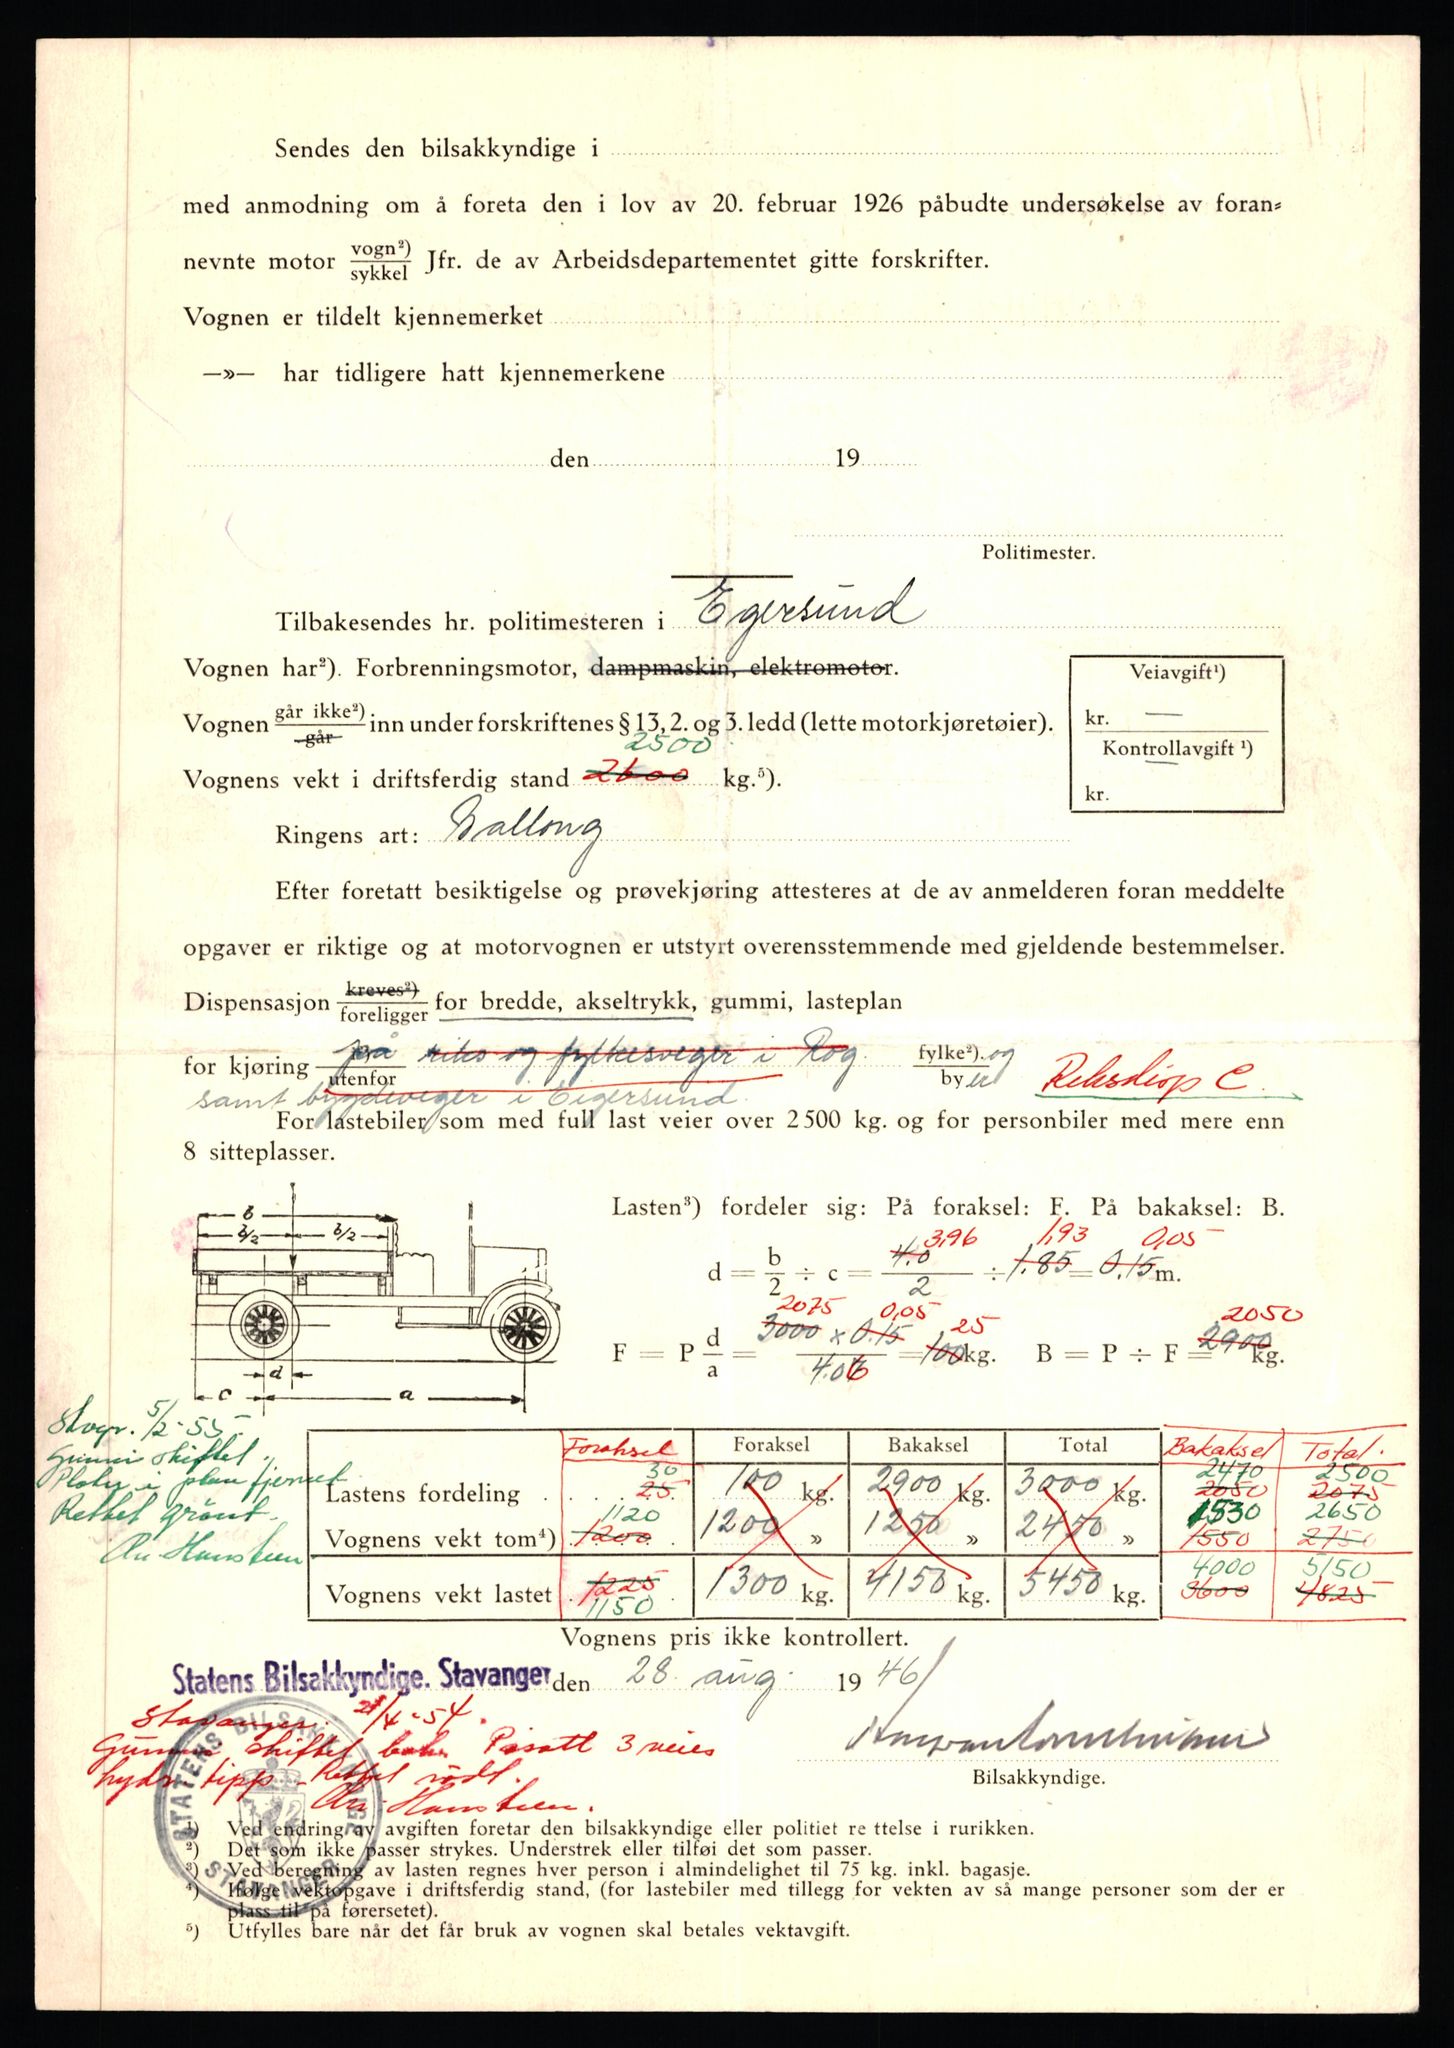 Sendes den bilsakkyndige i
med anmodning om å foreta den i lov av 20. februar 1926 påbudte undersøkelse av foran=
nevnte motor vogn²) / sykkel Jfr. de av Arbeidsdepartementet gitte forskrifter.
Vognen er tildelt kjennemerket
—»— har tidligere hatt kjennemerkene
den 19
Politimester.
Tilbakesendes hr. politimesteren i Egersund
Vognen har²). Forbrenningsmotor, dampmaskin, elektromotor.
Veiavgift¹)
kr. —
Kontrollavgift ¹)
—
kr.
Vognen går ikke²) / går inn under forskriftenes § 13, 2. og 3. ledd (lette motorkjøretøier).
2500
Vognens vekt i driftsferdig stand 2600 kg.⁵).
Ringens art: Ballong
Efter foretatt besiktigelse og prøvekjøring attesteres at de av anmelderen foran meddelte
opgaver er riktige og at motorvognen er utstyrt overensstemmende med gjeldende bestemmelser.
Dispensasjon kreves²) / foreligger for bredde, akseltrykk, gummi, lasteplan
for kjøring på / utenfor riks og fylkesveger i Rog. fylke²). og / by er
samt bygdeveger i Eigersund.
Riksdisp C.
For lastebiler som med full last veier over 2500 kg. og for personbiler med mere enn
8 sitteplasser.
Lasten³) fordeler sig: På foraksel: F. På bakaksel: B.
3,96 1,93 0,05
d = b/2 ÷ c = 4.0/2 ÷ 1.85 = 0.15 m.
2075 0,05 25 2050
F = P d/a = 3000 x 0.15 / 4.06 = 100 kg. B = P ÷ F = 2900 kg.
b
b/2 b/2
d
c a
Stvgr. 5/2-55
Gummi skiftet.
Plate i plan fjernet
Rettet grønt.
Chr. Hansteen
Foraksel Foraksel Bakaksel Total Bakaksel Total.
30 2470 2500
Lastens fordeling 25 100 kg. 2900 kg. 3000 kg. 2050 2075
1120 1530 2650
Vognens vekt tom⁴) 1200 1200 » 1250 » 2450 » 1550 2750
4000 5150
Vognens vekt lastet 1225 1300 kg. 4150 kg. 5450 kg. 3600 4825
1150
Vognens pris ikke kontrollert.
Statens Bilsakkyndige. Stavanger den 28. aug. 1946
Stavanger. 21/4-54.
Gummi skiftet bak. Påsatt 3 veies
hydr. tipp - Rettet rødt.
Chr. Hansteen.
Bilsakkyndige.
STATENS BILSAKKYNDIGE
STAVANGER
¹) Ved endring av avgiften foretar den bilsakkyndige eller politiet re ttelse i rurikken.
²) Det som ikke passer strykes. Understrek eller tilføi det som passer.
³) Ved beregning av lasten regnes hver person i almindelighet til 75 kg. inkl. bagasje.
⁴) Ifølge vektopgave i driftsferdig stand, (for lastebiler med tillegg for vekten av så mange personer som der er
plass til på førersetet).
⁵) Utfylles bare når det får bruk av vognen skal betales vektavgift.